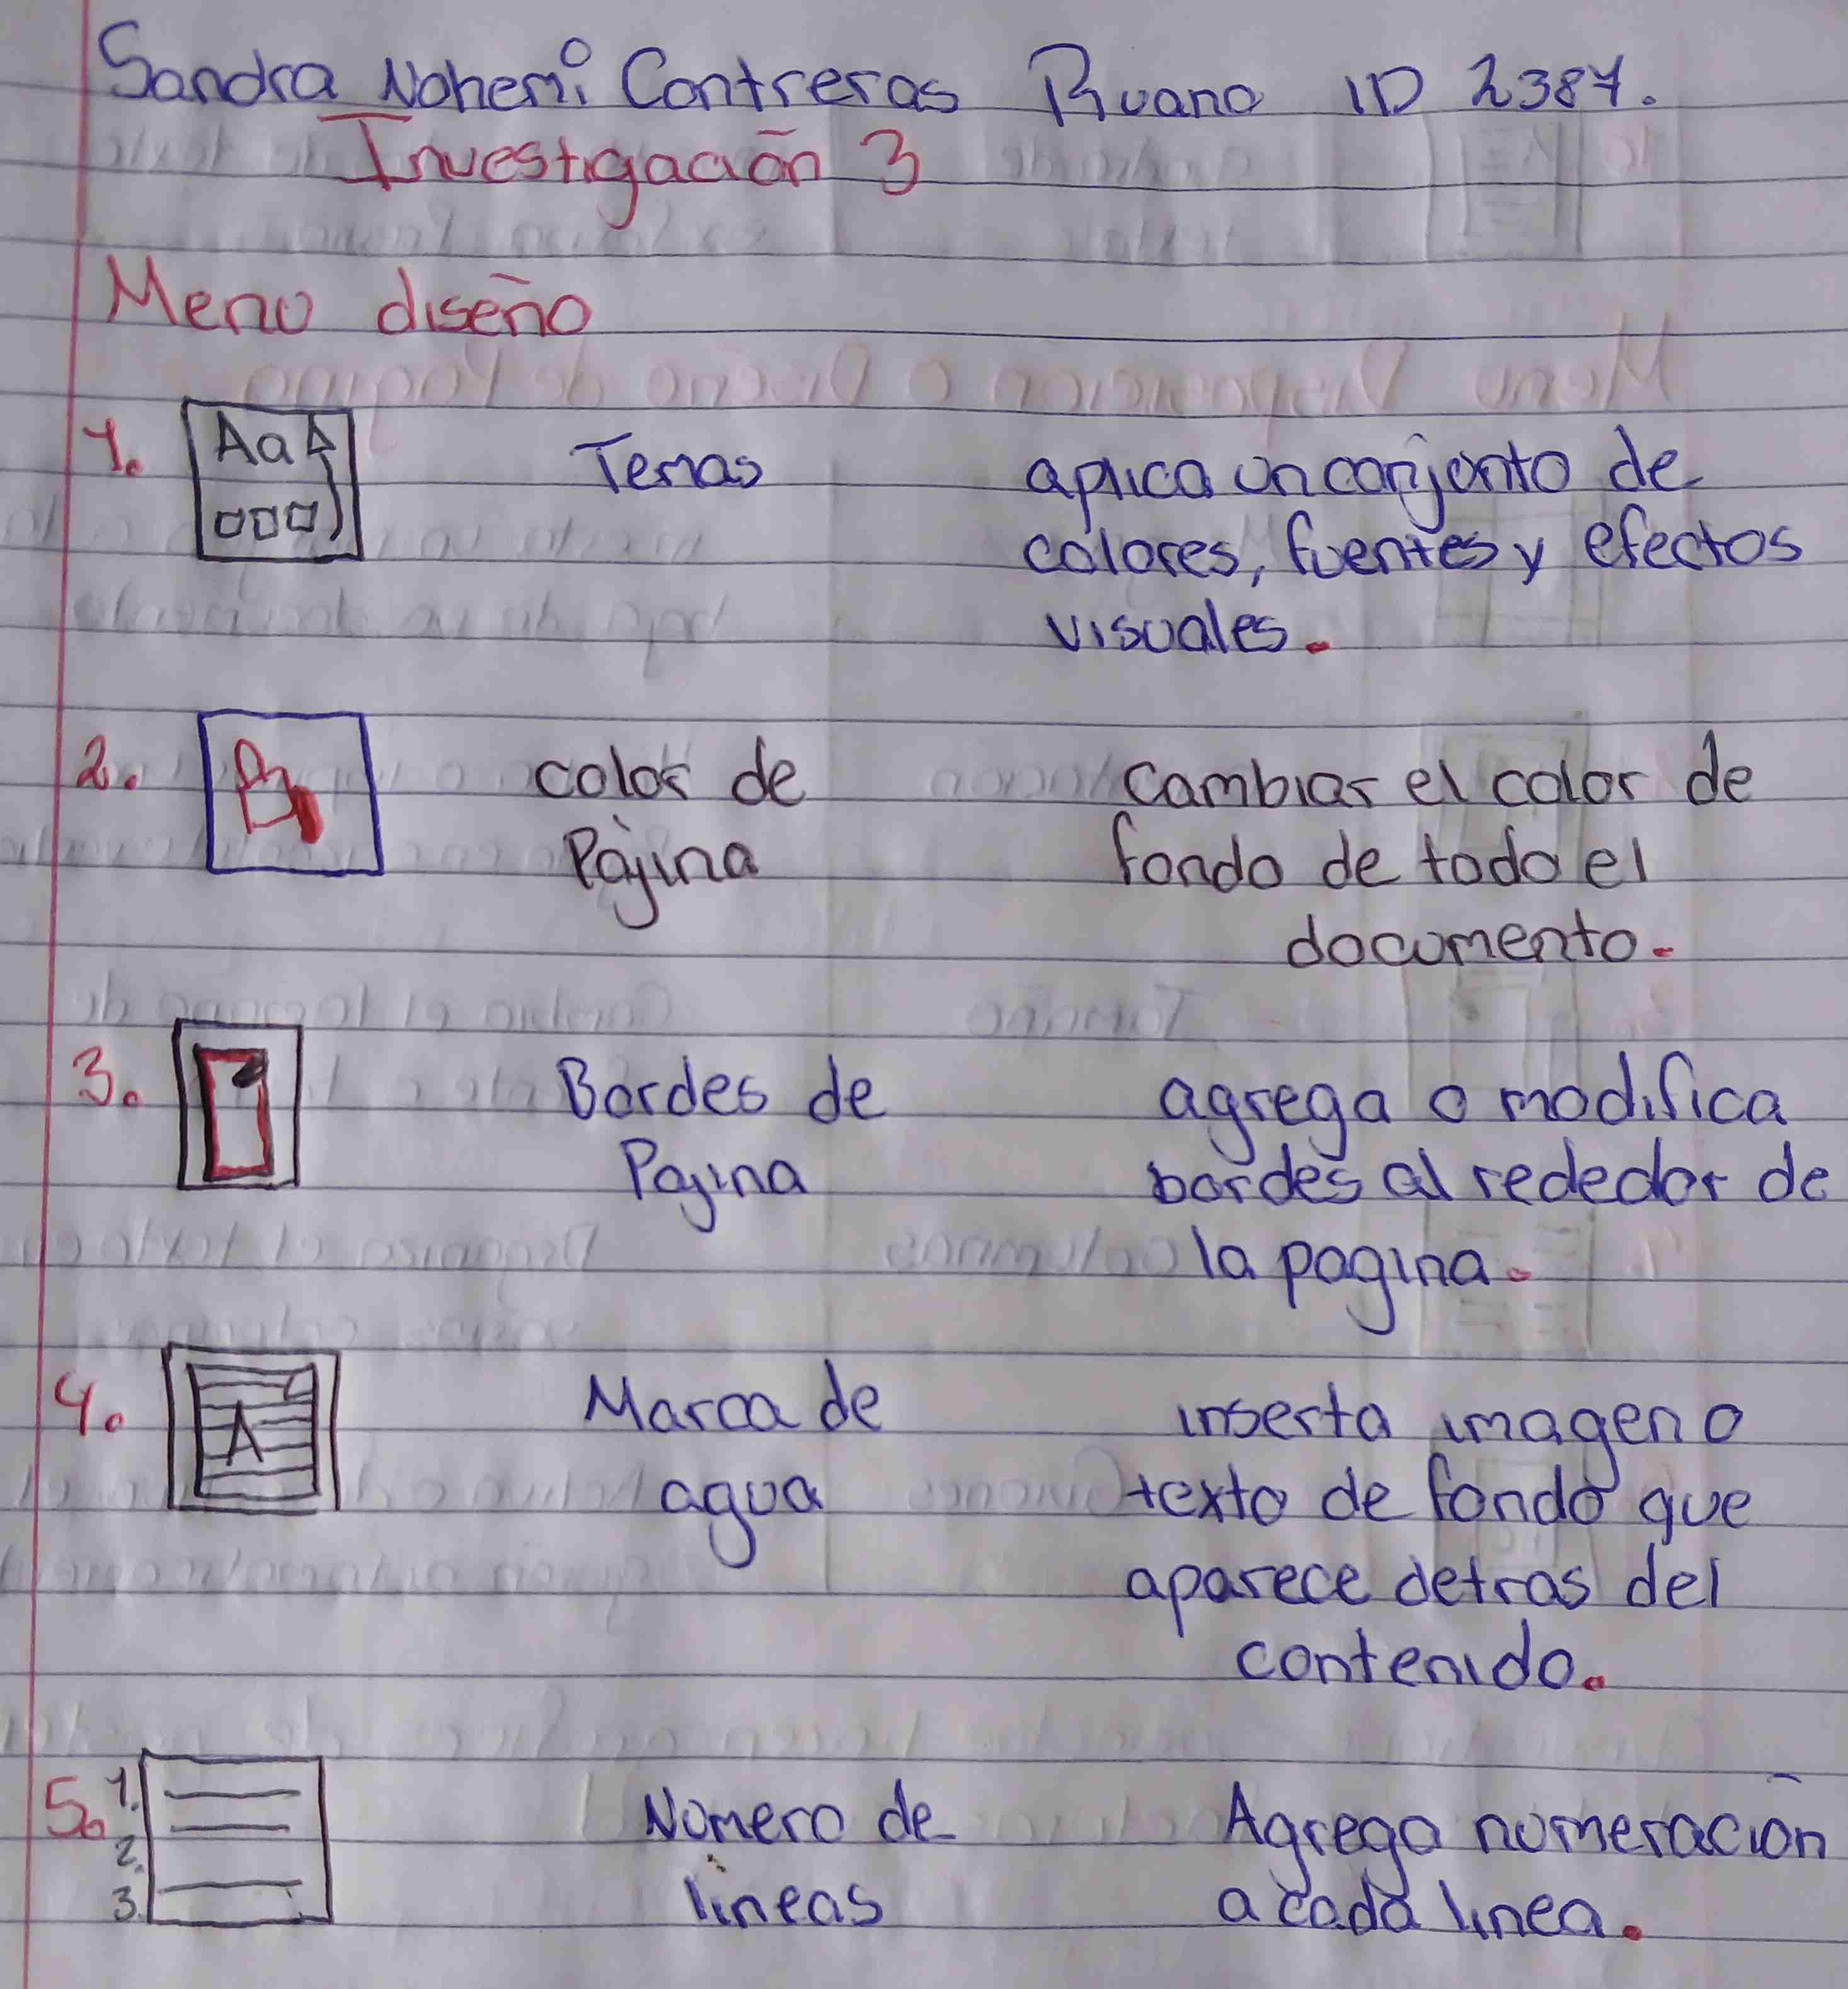 Sandra Nohemi Contreras Ruano ID 2387.
Investigación 3
Menu diseño
1. Aa Temas aplica un conjunto de
colores, fuentes y efectos
visuales.
2. color de cambiar el color de
Pájina fondo de todo el
documento.
3. Bordes de agrega o modifica
Pajina bordes al rededor de
la pagina.
4. A Marca de inserta imagen o
agua texto de fondo que
aparece detras del
contenido.
5. 1. Número de Agrega numeración
2.
3. lineas a cada linea.